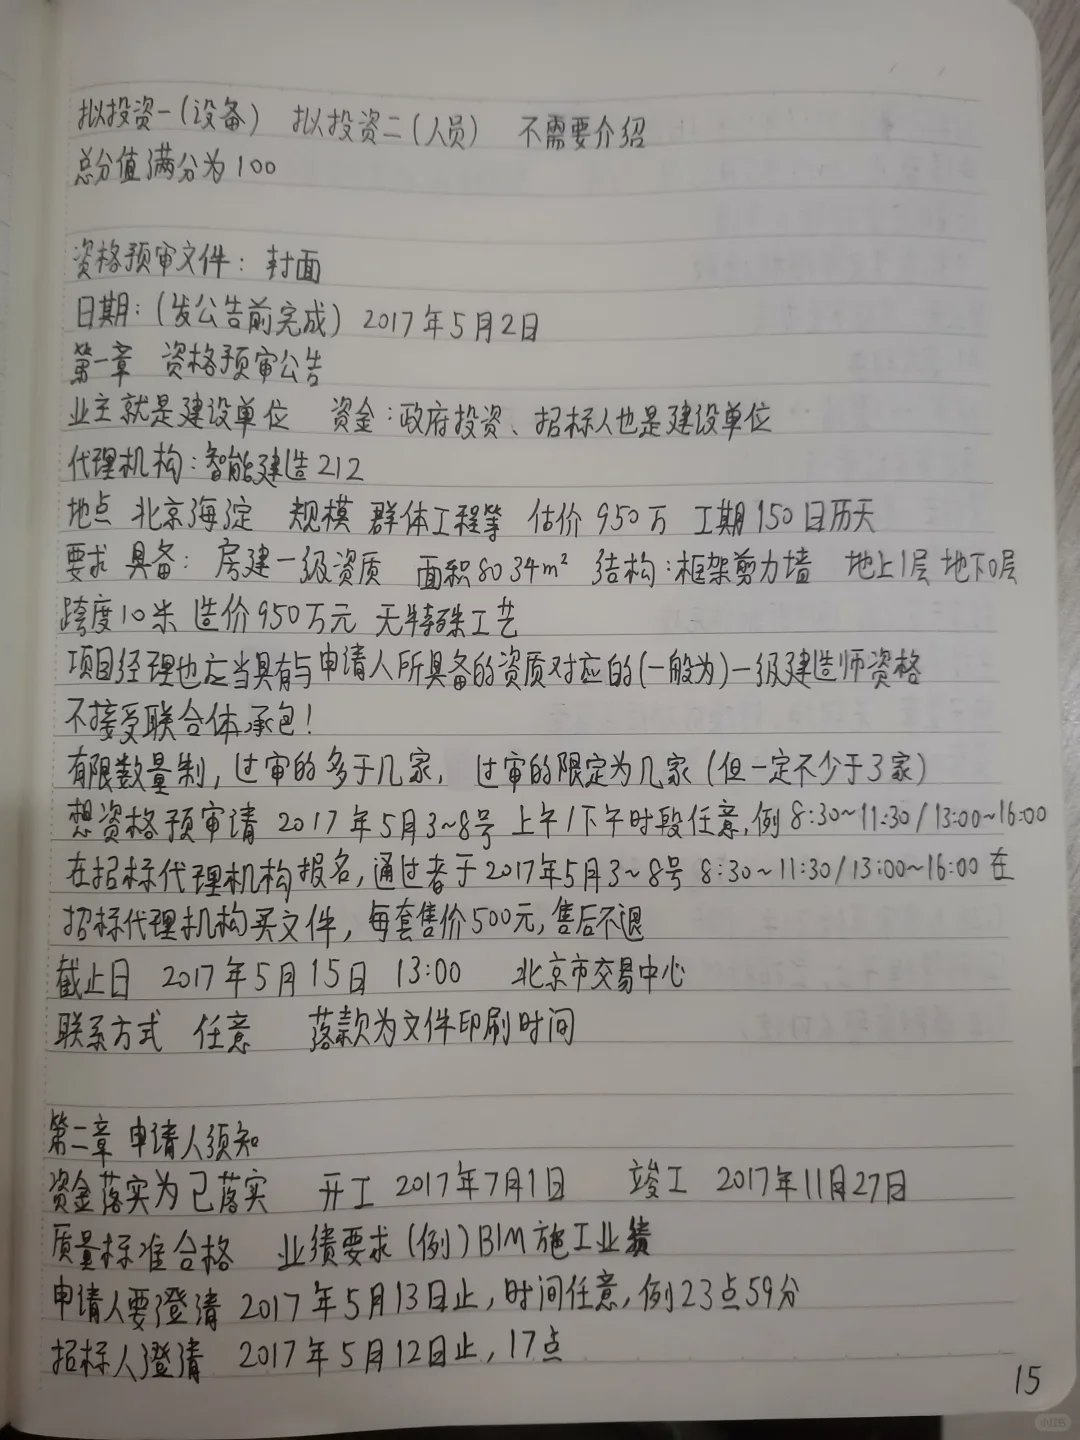 拟投资一(设备) 拟投资二(人员) 不需要介绍
总分值满分为100
资格预审文件: 封面
日期:(发公告前完成) 2017年5月2日
第一章 资格预审公告
业主就是建设单位 资金:政府投资、招标人也是建设单位
代理机构:智能建造212
地点 北京海淀 规模 群体工程等 估价950万 工期150日历天
要求 具备: 房建一级资质 面积8034m² 结构:框架剪力墙 地上1层 地下0层
跨度10米 造价950万元 无特殊工艺
项目经理也应当具有与申请人所具备的资质对应的(一般为)一级建造师资格
不接受联合体承包!
有限数量制, 过审的多于几家, 过审的限定为几家(但一定不少于3家)
想资格预审请 2017年5月3~8号 上午/下午时段任意,例8:30~11:30/13:00~16:00
在招标代理机构报名,通过者于2017年5月3~8号 8:30~11:30/13:00~16:00在
招标代理机构买文件, 每套售价500元,售后不退
截止日 2017年5月15日 13:00 北京市交易中心
联系方式 任意 落款为文件印刷时间
第二章 申请人须知
资金落实为已落实 开工 2017年7月1日 竣工 2017年11月27日
质量标准合格 业绩要求(例)BIM施工业绩
申请人要澄清 2017年5月13日止,时间任意,例23点59分
招标人澄清 2017年5月12日止,17点
15
小红书